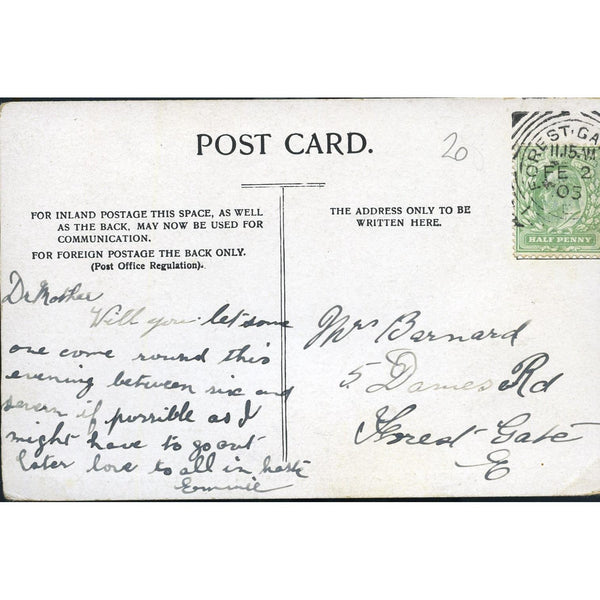 POST CARD.
20
FOR INLAND POSTAGE THIS SPACE, AS WELL
AS THE BACK, MAY NOW BE USED FOR
COMMUNICATION.
FOR FOREIGN POSTAGE THE BACK ONLY.
(Post Office Regulation).
THE ADDRESS ONLY TO BE
WRITTEN HERE.
FOREST·GA
11.15
FE 2
05
HALF PENNY
Dr Mother
Will you let some
one come round this
evening between six and
seven if possible as I
might have to go out
later love to all in haste
Emmie
Mrs Barnard
5 Dames Rd
Forest Gate
E